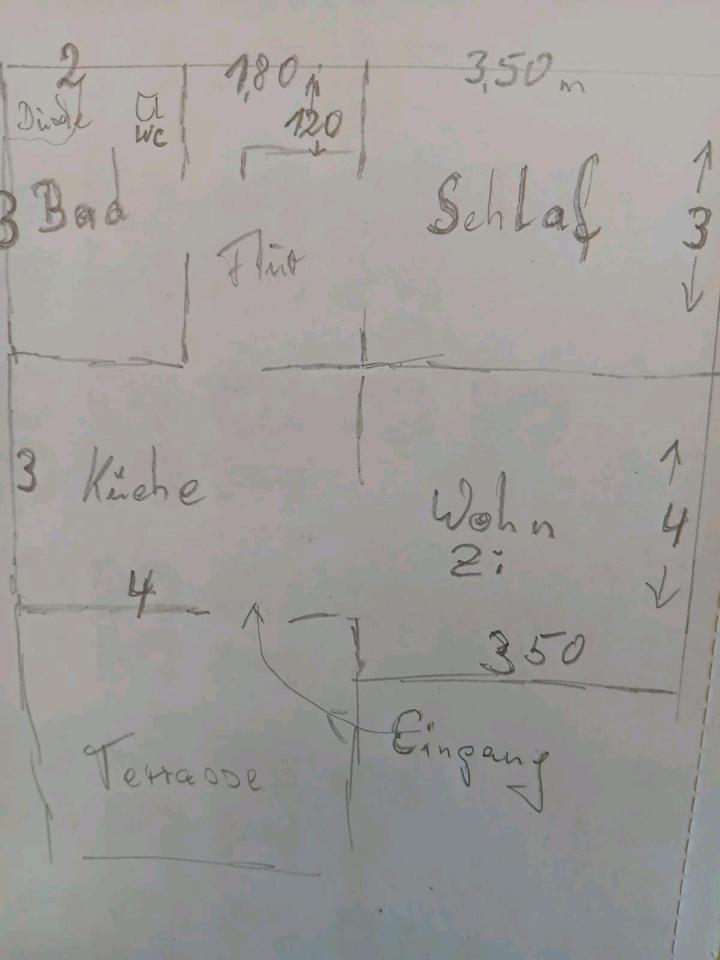 2 1,80 3,50 m
Dusche WC 120
3 Bad Schlaf 3
Flur
3 Küche Wohn 4
Zi
4
350
Eingang
Terrasse